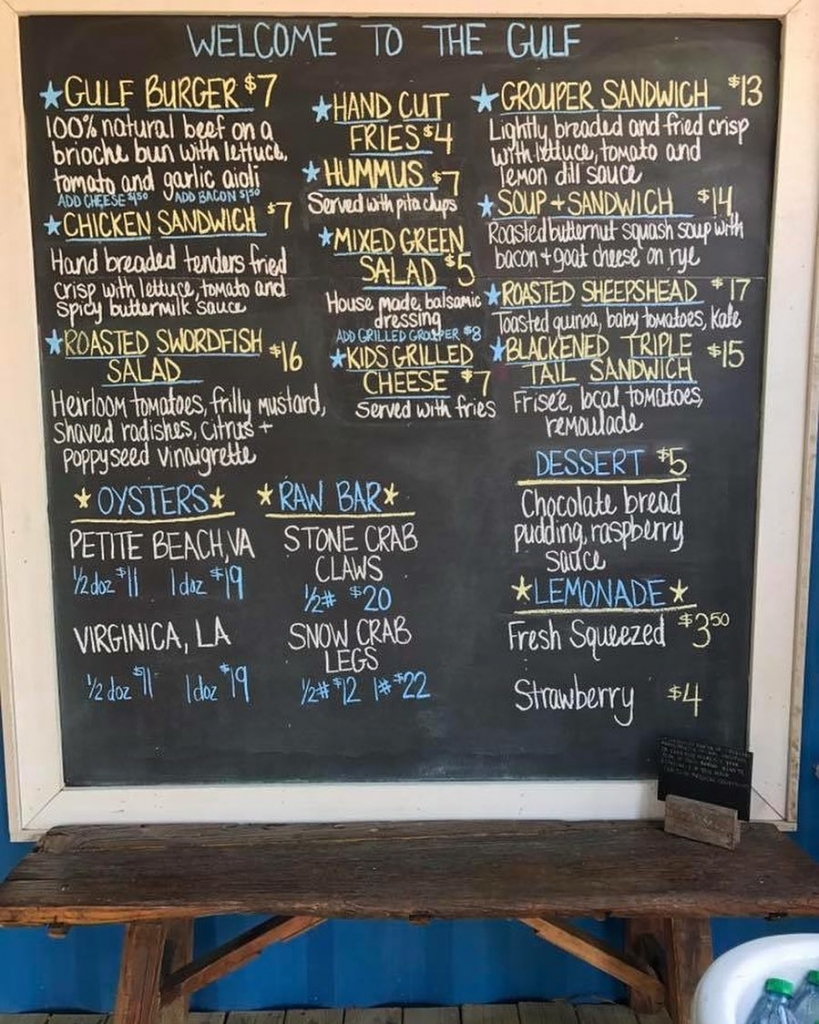 WELCOME TO THE GULF
★GULF BURGER $7
100% natural beef on a
brioche bun with lettuce,
tomato and garlic aioli
ADD CHEESE $1.50 ADD BACON $1.50
★CHICKEN SANDWICH $7
Hand breaded tenders fried
crisp with lettuce, tomato and
spicy buttermilk sauce
★ROASTED SWORDFISH
SALAD $16
Heirloom tomatoes, frilly mustard,
shaved radishes, citrus +
poppyseed vinaigrette
★HAND CUT
FRIES $4
★HUMMUS $7
Served with pita chips
★MIXED GREEN
SALAD $5
House made balsamic
dressing
ADD GRILLED GROUPER $8
★KIDS GRILLED
CHEESE $7
Served with fries
★GROUPER SANDWICH $13
Lightly breaded and fried crisp
with lettuce, tomato and
lemon dill sauce
★SOUP + SANDWICH $14
Roasted butternut squash soup with
bacon + goat cheese on rye
★ROASTED SHEEPSHEAD $17
Toasted quinoa, baby tomatoes, kale
★BLACKENED TRIPLE
TAIL SANDWICH $15
Friseé, local tomatoes,
remoulade
★OYSTERS★
PETITE BEACH, VA
1/2 doz $11 1 doz $19
VIRGINICA, LA
1/2 doz $11 1 doz $19
★RAW BAR★
STONE CRAB
CLAWS
1/2# $20
SNOW CRAB
LEGS
1/2# $12 1# $22
DESSERT $5
Chocolate bread
pudding, raspberry
sauce
★LEMONADE★
Fresh Squeezed $3.50
Strawberry $4